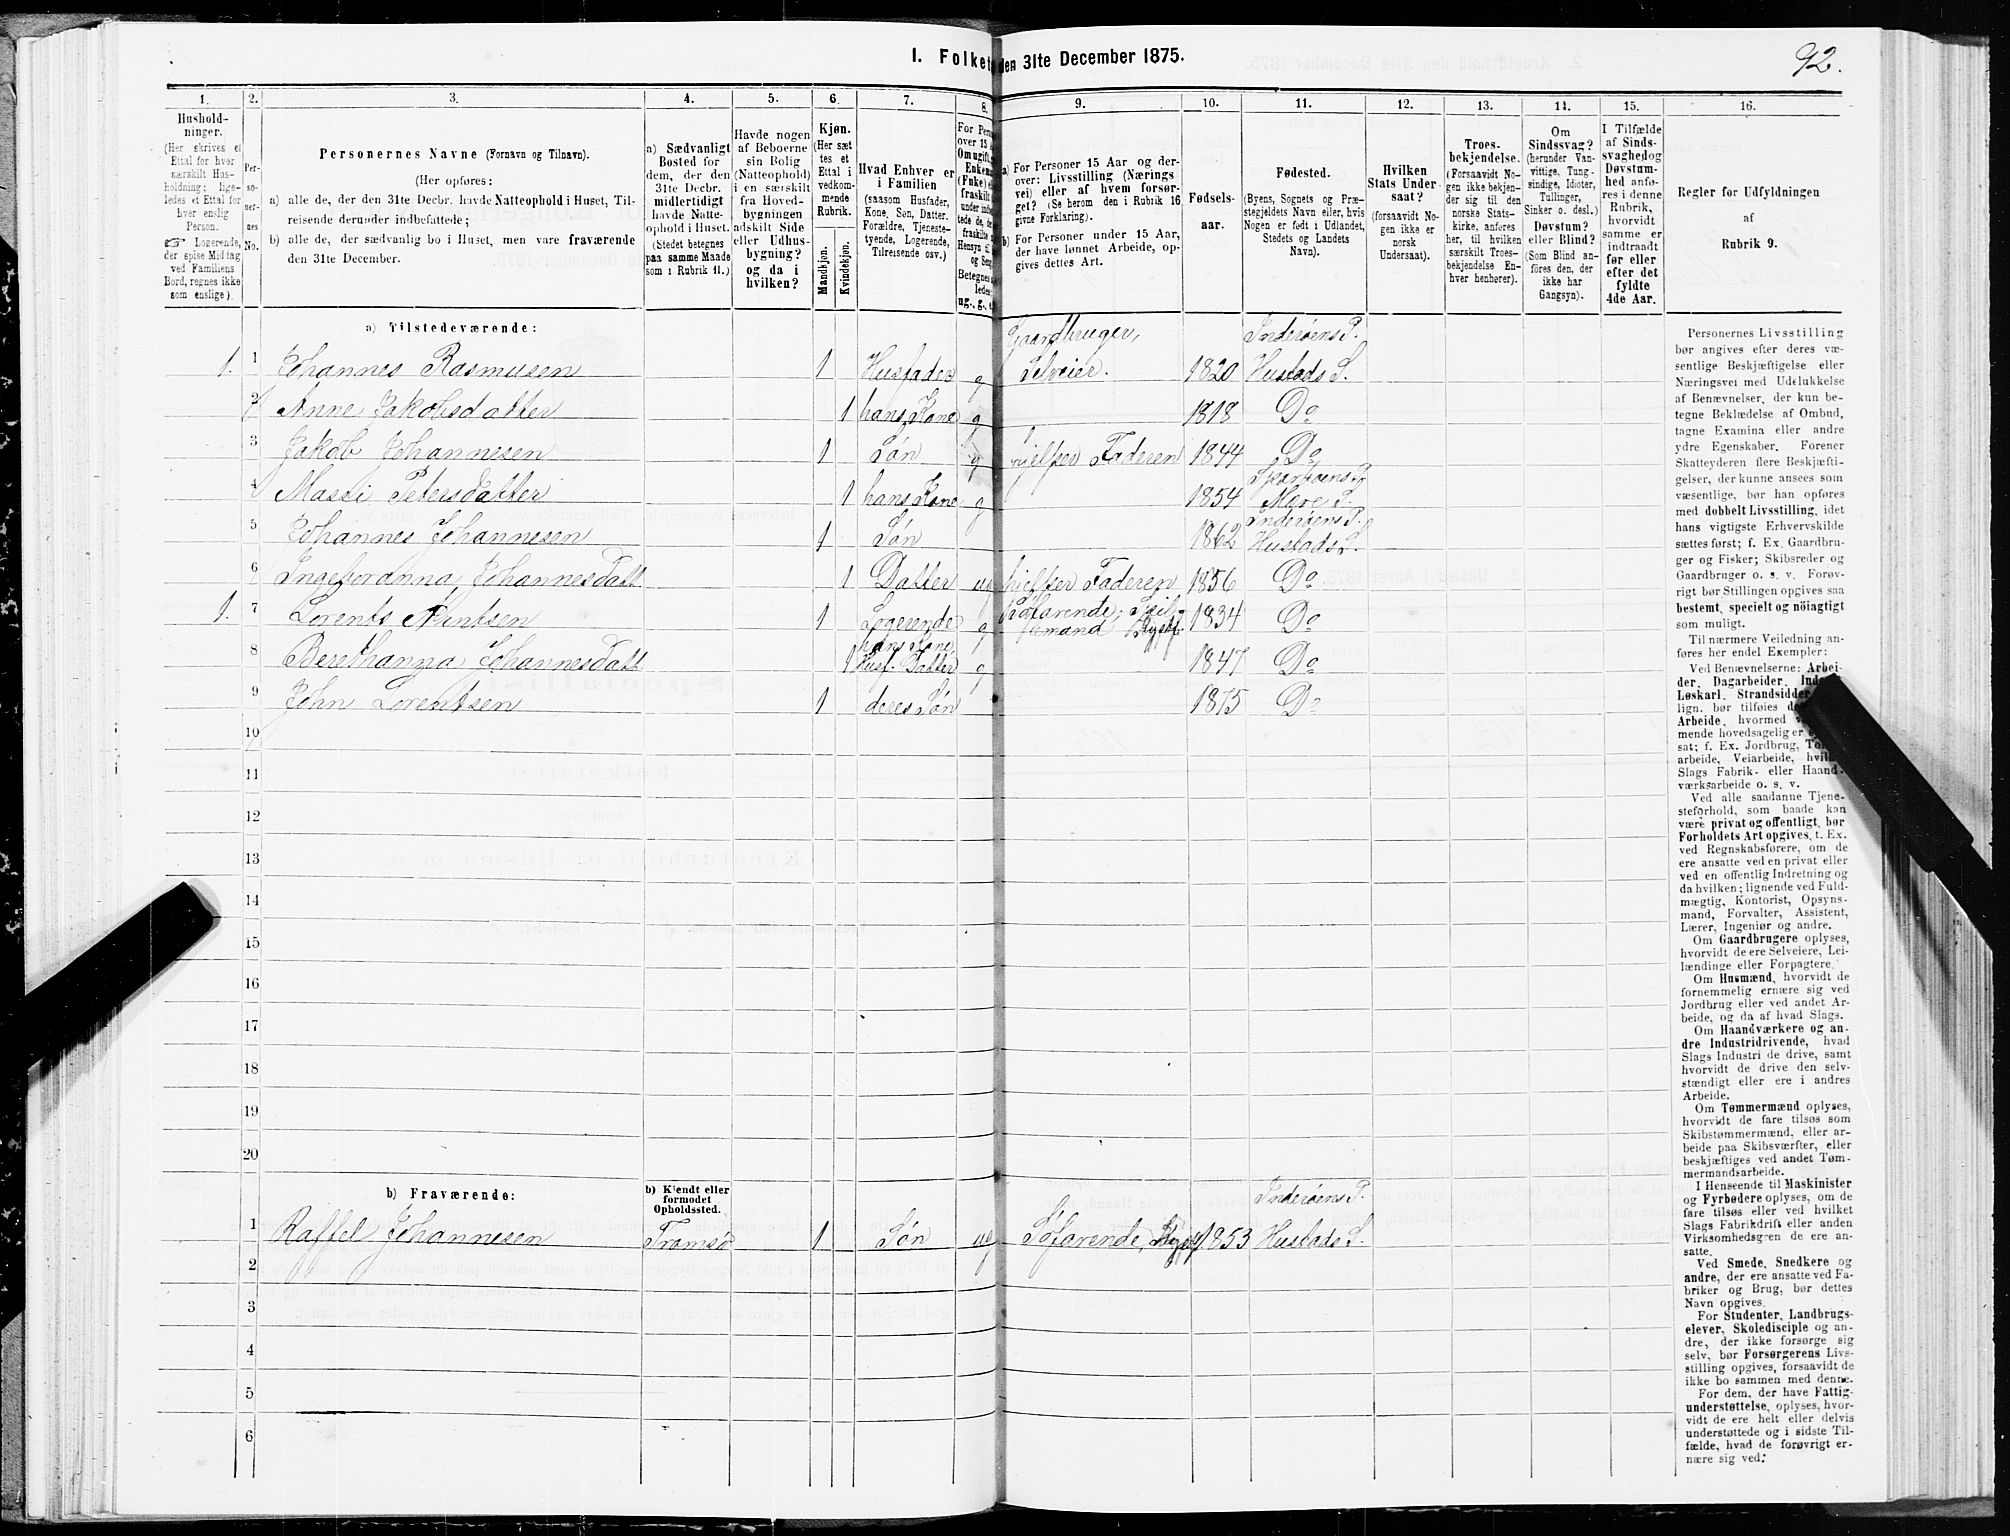 I. Folket den 31te December 1875.
92.
1. 2. 3. 4. 5. 6. 7. 8. 9. 10. 11. 12. 13. 14. 15. 16.
Hushold-
ninger.
(Her skrives et
Ettal for hver
særskilt Hus-
holdning; lige-
ledes et Ettal for
hver enslig
Person.
☞ Logerende,
der spise Middag
ved Familiens
Bord, regnes ikke
som enslige).
Per-
so-
ner-
nes
No.
Personernes Navne (Fornavn og Tilnavn).
(Her opføres:
a) alle de, der den 31te Decbr. havde Natteophold i Huset, Til-
reisende derunder indbefattede;
b) alle de, der sædvanlig bo i Huset, men vare fraværende
den 31te December.
a) Sædvanligt
Bosted for
dem, der den
31te Decbr.
midlertidigt
havde Natte-
ophold i Huset.
(Stedet betegnes
paa samme Maade
som i Rubrik 11.)
Havde nogen
af Beboerne
sin Bolig
(Natteophold)
i en særskilt
fra Hoved-
bygningen
adskilt Side
eller Udhus-
bygning?
og da i
hvilken?
Kjøn.
(Her sæt
tes et
Ettal i
vedkom-
mende
Rubrik.
Mandkjøn.
Kvindekjøn.
Hvad Enhver er
i Familien
(saasom Husfader,
Kone, Søn, Datter,
Forældre, Tjeneste-
tyende, Logerende,
Tilreisende osv.)
For Pers
over 15
Om ugift,
Enkem
(Fnke) e
fraskilt
a) For Personer 15 Aar og der-
over: Livsstilling (Nærings
vei) eller af hvem forsør-
get? (Se herom den i Rubrik 16
givne Forklaring).
b) For Personer under 15 Aar,
der have lønnet Arbeide, op-
gives dettes Art.
Fødsels-
aar.
Fødested.
(Byens, Sognets og Præ-
stegjeldets Navn eller, hvis
Nogen er født i Udlandet,
Stedets og Landets
Navn).
Hvilken
Stats Under-
saat?
(forsaavidt No-
gen ikke er
norsk
Undersaat).
Troes-
bekjendelse.
(Forsaavidt No-
gen ikke bekjen-
der sig til den
norske Stats-
kirke, anføres
her, til hvilken
særskilt Troes-
bekjendelse En-
hver henhører).
Om
Sindssvag?
(herunder Van-
vittige, Tung-
sindige, Idioter,
Tullinger,
Sinker o. desl.)
Døvstum?
eller Blind?
(Som Blind an-
føres den, der
ikke har
Gangsyn).
I Tilfælde
af Sinds-
svaghed og
Døvstum-
hed anfø-
res i denne
Rubrik,
hvorvidt
samme er
indtraadt
før eller
efter det
fyldte
4de Aar.
Regler for Udfyldningen
af
Rubrik 9.
a) Tilstedeværende:
1. 1 Johannes Rasmusen 1 Husfader g Gaardbruger, Selveier. 1820 Inderøens P. Hustads S.
2 Anne Jakobsdatter 1 hans Kone g 1818 Do
3 Jakob Johannesen 1 Søn g hjelper Faderen 1844 Do
4 Massi Petersdatter 1 hans Kone g 1854 Sparboens P. Mære S.
5 Johannes Johannesen 1 Søn 1862 Inderøens P. Hustads S.
6 Ingeboranna Johannesdatt 1 Datter ug hjelper Faderen 1856 Do
1. 7 Lorents 1 Logerende g Søfarende, 1834 Do
8 Berethanna Johannesdatt 1 hans Kone Husf. Datter g 1847 Do
9 John Lorentsen 1 deres Søn 1875 Do
10
11
12
13
14
15
16
17
18
19
20
b) Fraværende:
b) Kjendt eller
formodet
Opholdssted.
1 Raffel Johannesen Tromsø 1 Søn ug Søfarende, 1853 Inderøens P. Hustads S.
2
3
4
5
6
Personernes Livsstilling
bør angives efter deres væ-
sentlige Beskjæftigelse eller
Næringsvei med Udelukkelse
af Benævnelser, der kun be-
tegne Beklædelse af Ombud,
tagne Examina eller andre
ydre Egenskaber. Forener
Skatteyderen flere Beskjæfti-
gelser, der kunne ansees som
væsentlige, bør han opføres
med dobbelt Livsstilling, idet
hans vigtigste Erhvervskilde
sættes først; f. Ex. Gaardbru-
ger og Fisker; Skibsreder og
Gaardbruger o. s. v. Forøv-
rigt bør Stillingen opgives saa
bestemt, specielt og nöiagtigt
som muligt.
Til nærmere Veiledning an-
føres her endel Exempler:
Ved Benævnelserne: Arbei-
der, Dagarbeider,
Løskarl, Strandsidder
lign. bør tilføies
Arbeide, hvormed
mende hovedsagelig er
sat; f. Ex. Jordbrug,
arbeide, Veiarbeide,
Slags Fabrik- eller Haand-
værksarbeide o. s. v.
Ved alle saadanne Tjene-
steforhold, som baade kan
være privat og offentligt, bør
Forholdets Art opgives, f. Ex.
ved Regnskabsførere, om de
ere ansatte ved en privat eller
ved en offentlig Indretning og
da hvilken; lignende ved Fuld-
mægtig, Kontorist, Opsyns-
mand, Forvalter, Assistent,
Lærer, Ingeniør og andre.
Om Gaardbrugere oplyses,
hvorvidt de ere Selveiere, Lei-
lændinge eller Forpagtere.
Om Husmænd, hvorvidt de
fornemmelig ernære sig ved
Jordbrug eller ved andet Ar-
beide, og da af hvad Slags.
Om Haandværkere og an-
dre Industridrivende, hvad
Slags Industri de drive, samt
hvorvidt de drive den selv-
stændigt eller ere i andres
Arbeide.
Om Tømmermænd oplyses,
hvorvidt de fare tilsøs som
Skibstømmermænd, eller ar-
beide paa Skibsværfter, eller
beskjæftiges ved andet Tøm-
mermandsarbeide.
I Henseende til Maskinister
og Fyrbødere oplyses, om de
fare tilsøs eller ved hvilket
Slags Fabrikdrift eller anden
Virksomhedsgren de ere an-
satte.
Ved Smede, Snedkere og
andre, der ere ansatte ved Fa-
briker og Brug, bør dettes
Navn opgives.
For Studenter, Landbrugs-
elever, Skoledisciple og an-
dre, der ikke forsørge sig
selv, bør Forsørgerens Livs-
stilling opgives, forsaavidt de
ikke bo sammen med denne.
For dem, der have Fattig-
understøttelse, oplyses, hvor-
vidt de ere helt eller delvis
understøttede og i sidste Til-
fælde, hvad de forøvrigt er-
nære sig ved.